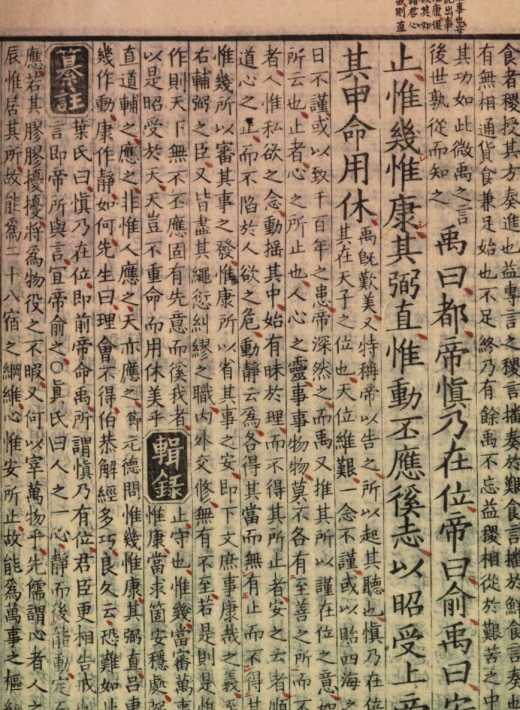 食者稷授其方奏進也益專言之稷言播奏於艱食言播於鮮食言奏也
有無相通貨食兼足始也不足終乃有餘禹不忘益稷相從於艱苦之中
其功如此微禹之言
後世孰從而知之
禹曰都帝慎乃在位帝曰俞禹曰安
止惟幾惟康其弼直惟動丕應徯志以昭受上帝
其申命用休
禹既歎美又特稱帝以告之所以起其聽也慎乃在位
其在天子之位也天位維艱一念不謹或以貽四海之
日不謹或以致千百年之患帝深然之而禹又推其所以謹在位之意如
所云也止者心之所止也人心之靈事事物物莫不各有至善之所而不
者人惟私欲之念動搖其中始有昧於理而不得其所止者安之云者順
道心之正而不陷於人欲之危動靜云爲各得其當而無有止而不得其
惟幾所以審其事之發惟康所以省其事之安即下文庶事康哉之義至
右輔弼之臣又皆盡其繩愆糾繆之職內外交修無有不至若是則是惟
作則天下無不丕應固有先意而徯我者
以是昭受於天天豈不重命而用休美乎
輯錄
止守也惟幾當審萬事
惟康當求箇安穩處弼
直道輔之應之非惟人應之天亦應之節元德問惟幾惟康其弼直呂東
幾作動康作靜如何先生曰理會不得伯恭解經多巧良久云恐難如此
纂註
葉氏曰慎乃在位即前帝命禹所謂慎乃有位君臣更相告戒
言即帝所與言宜帝俞之○眞氏曰人之一心靜而後能動定而
應若其膠膠擾擾將爲物役之不暇又何以宰萬物乎先儒謂心者人之
辰惟居其所故能爲二十八宿之綱維心惟安所止故能爲萬事之樞紐